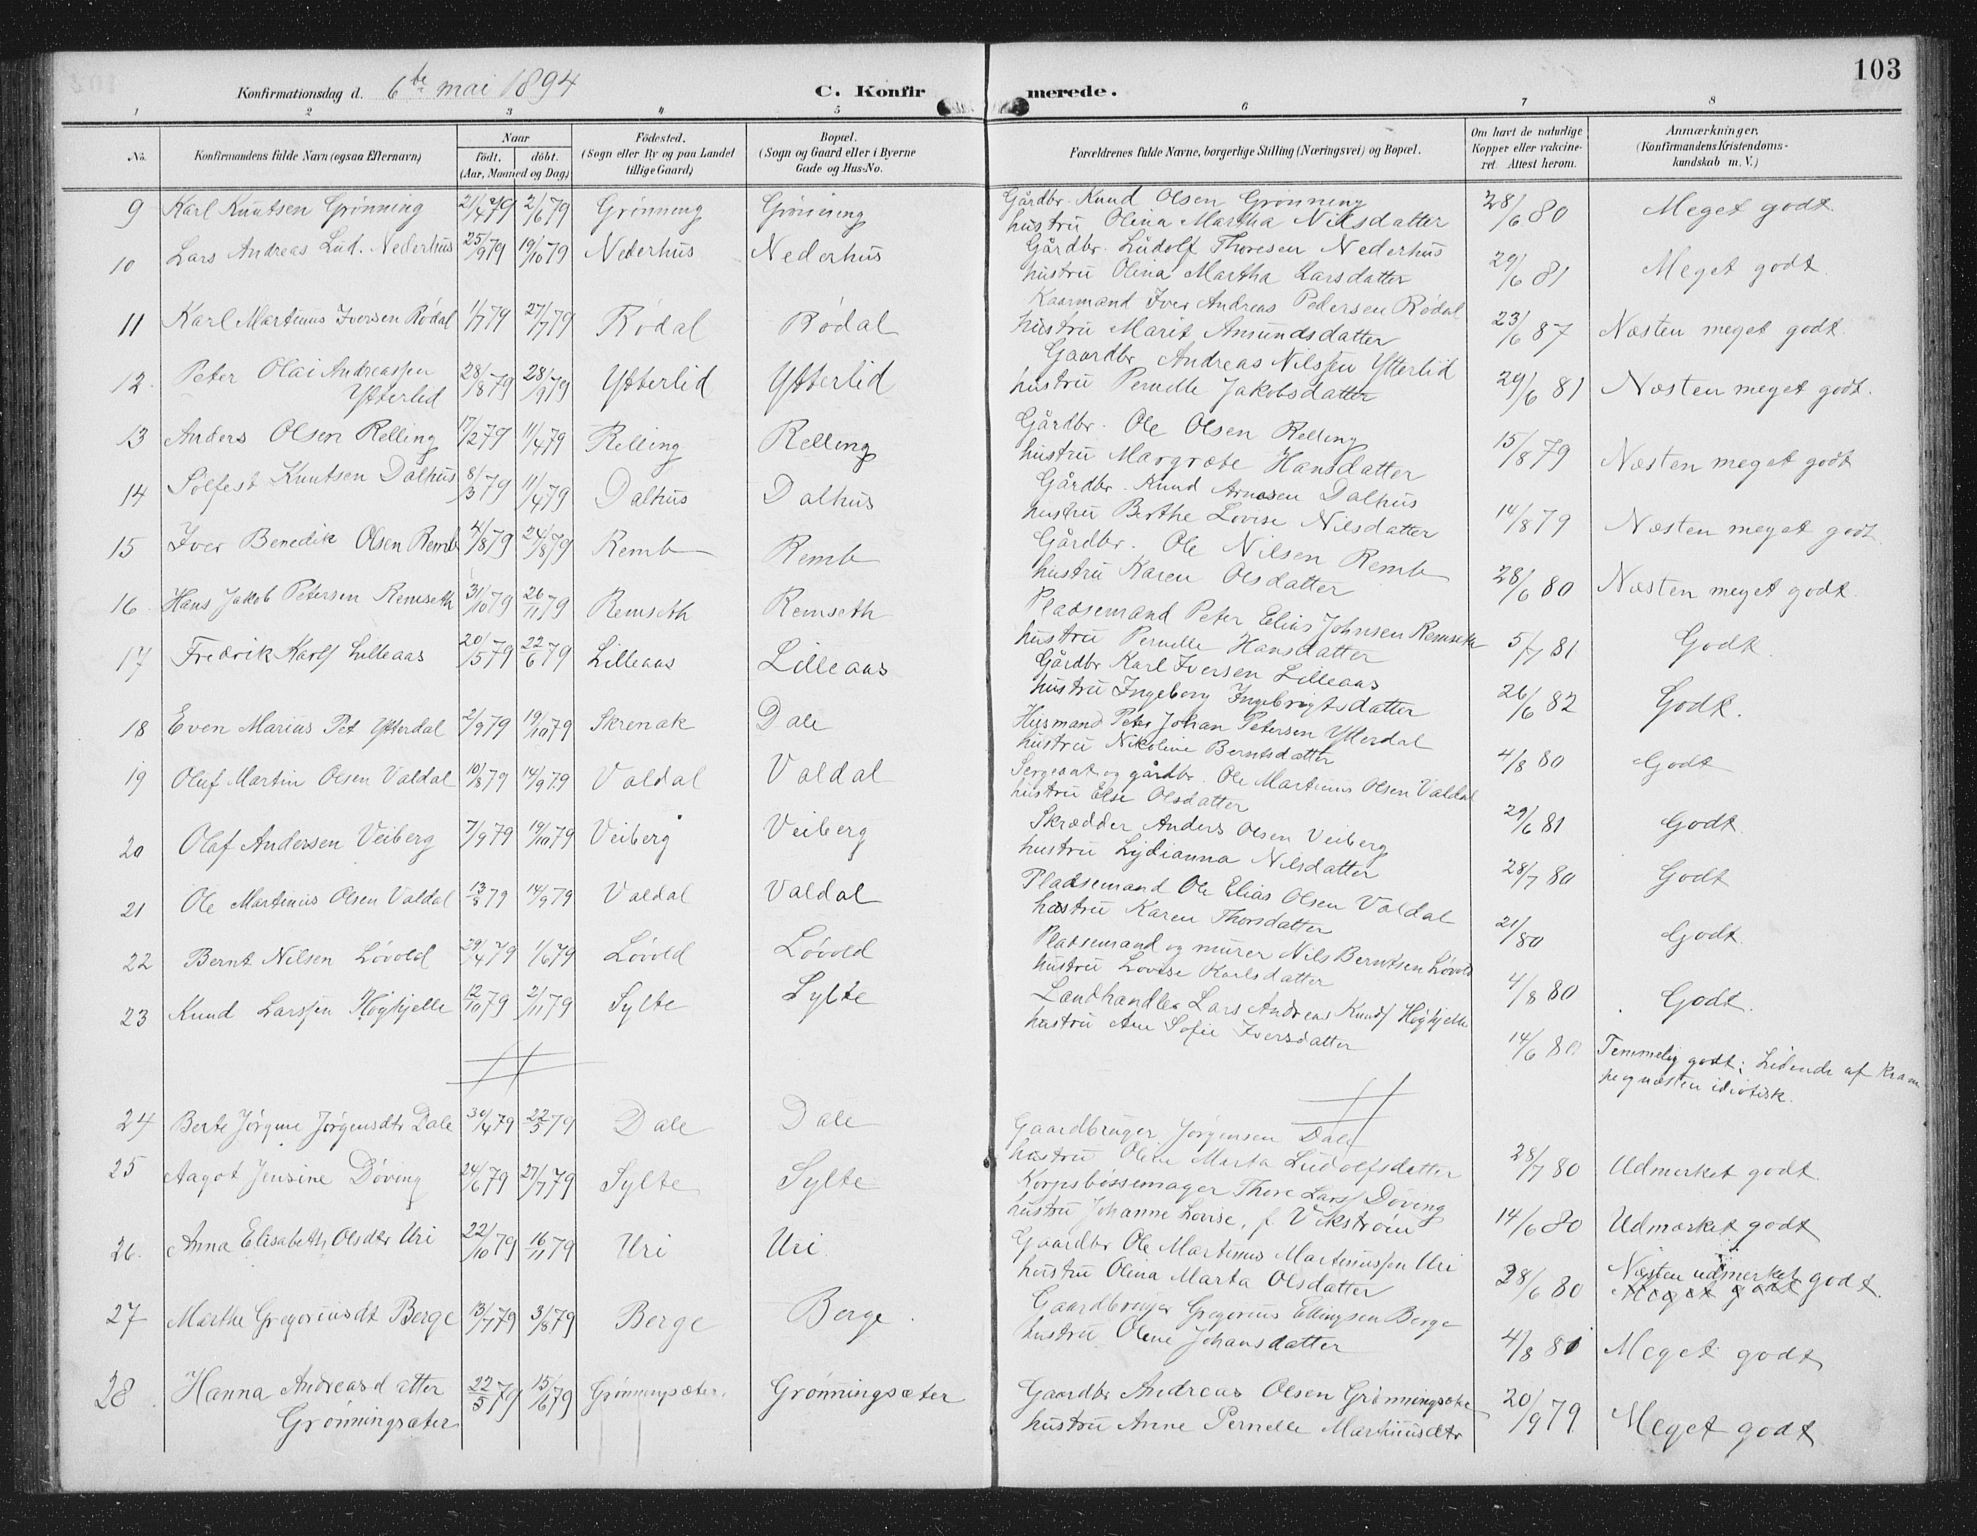 103
Konfirmationsdag d. 6te mai 1894 C. Konfirmerede.
1 2 3 4 5 6 7 8
No. Konfirmandens fulde Navn (ogsaa Efternavn) Naar født. døbt. (Aar, Maaned og Dag) Fødested. (Sogn eller By og paa Landet tillige Gaard) Bopæl. (Sogn og Gaard eller i Byerne Gade og Hus-No. Forældrenes fulde Navne, borgerlige Stilling (Næringsvei) og Bopæl. Om havt de naturlige Kopper eller vakcineret. Attest herom. Anmærkninger. (Konfirmandens Kristendomskundskab m. V.)
9 Karl Knutsen Grönning 21/4 79 2/6 79 Grönning Grönning Gårdbr. Knud Olsen Grönning
hustru Olina Martha Nilsdatter 28/6 80 Meget godt.
10 Lars Andreas Lud. Nederhus 25/9 79 19/10 79 Nederhus Nederhus Gårdbr. Ludolf Thoresen Nederhus
hustru Olina Martha Larsdatter 29/6 81 Meget godt.
11 Karl Martinus Iversen Rødal 1/7 79 27/7 79 Rødal Rødal Kaarmand Iver Andreas Pedersen Rødal
hustru Marit Amundsdatter 23/6 87 Næsten meget godt.
12. Peter Olai Andreassen
Ytterlid 28/8 79 28/9 79 Ytterlid Ytterlid Gaardbr. Andreas Nilssen Ytterlid
hustru Pernelle Jakobsdatter 29/6 81 Næsten meget godt.
13 Anders Olsen Relling 17/2 79 11/4 79 Relling Relling Gårdbr. Ole Olsen Relling
hustru Margrete Hansdatter 15/8 79 Næsten meget godt
14 Solfest Knutsen Dalhus 8/3 79 11/4 79 Dalhus Dalhus Gårdbr. Knud Arnesen Dalhus
hustru Berthe Lovise Nilsdatter 14/8 79 Næsten meget godt.
15 Iver Benedik Olsen Remb 4/8 79 24/8 79 Remb Remb Gårdbr. Ole Nilsen Remb
hustru Karen Olsdatter 28/6 80 Næsten meget godt.
16. Hans Jakob Petersen Remseth 31/10 79 26/11 79 Remseth Remseth Pladsemand Peter Elias Johnsen Remseth
hustru Pernelle Hansdatter 5/7 81 Godt.
17 Fredrik Karls Lilleaas 20/5 79 22/6 79 Lilleaas Lilleaas Gårdbr Karl Iversen Lilleaas
hustru Ingeborg Ingebrigtsdatter 26/6 82 Godt.
18 Even Marius Pet Ytterdal 2/9 79 19/10 79 Skrenak Dale Husmand Peter Johan Petersen Ytterdal
hustru Nikoline Berntsdatter 4/8 80 Godt
19 Oluf Martin Olsen Valdal 10/8 79 14/9 79 Valdal Valdal Sergeant og gårdbr. Ole Martinus Olsen Valdal
hustru Else Olsdatter 29/6 81 Godt.
20 Olaf Andersen Veiberg 7/9 79 19/10 79 Veiberg Veiberg Skrædder Anders Olsen Veiberg
hustru Lydianna Nilsdatter 28/7 80 Godt
21 Ole Martinius Olsen Valdal 13/8 79 14/9 79 Valdal Valdal Pladsemand Ole Elias Olsen Valdal
hustru Karen Thorsdatter 21/80 Godt.
22 Bernt Nilsen Løvold 29/4 79 1/6 79 Løvold Løvold Pladsemand og murer Nils Berntsen Løvold
hustru Lovise Karlsdatter 4/8 80 Godt.
23 Knud Larssen Høgkjelle 12/10 79 2/11 79 Sylte Sylte Landhandler Lars Andreas Knuds Høgkjelle
hustru Ane Sofie Iversdatter 14/6 80 Temmelig godt; Lidende af kram
pe og næsten idiotisk.
24 Berte Jörgine Jörgensdtr Dale 30/4 79 22/5 79 Dale Dale Gaardbruger Jørgensen Dale
hustru Oline Marta Ludolfsdatter 28/7 80 Udmerket godt.
25 Aagot Jensine Döving 24/6 79 27/7 79 Sylte Sylte Korpsbøssemager Thore Lars Døving
hustru Johanne Lovise, f. Vikstrøm 14/6 80 Udmærket godt
26. Anna Elisabeth Olsdtr Uri 22/10 79 16/11 79 Uri Uri Gaardbr Ole Martinus Martinussen Uri
hustru Olina Marta Olsdatter 28/6 80 Næsten udmerket godt.
Meget godt
27 Marthe Gregoriusdt Berge 13/7 79 3/8 79 Berge Berge Gaardbruger Gregorius Ellingsen Berge
hustru Oline Johansdatter 4/8 81 Meget godt
28. Hanna Andreasdatter
Grönningsæter 22/5 79 15/6 79 Grönningsæter. Grønningsæter Gaardbr Andreas Olsen Grønningsæter
hustru Anne Pernelle Martinusdtr 20/9 79 Meget godt